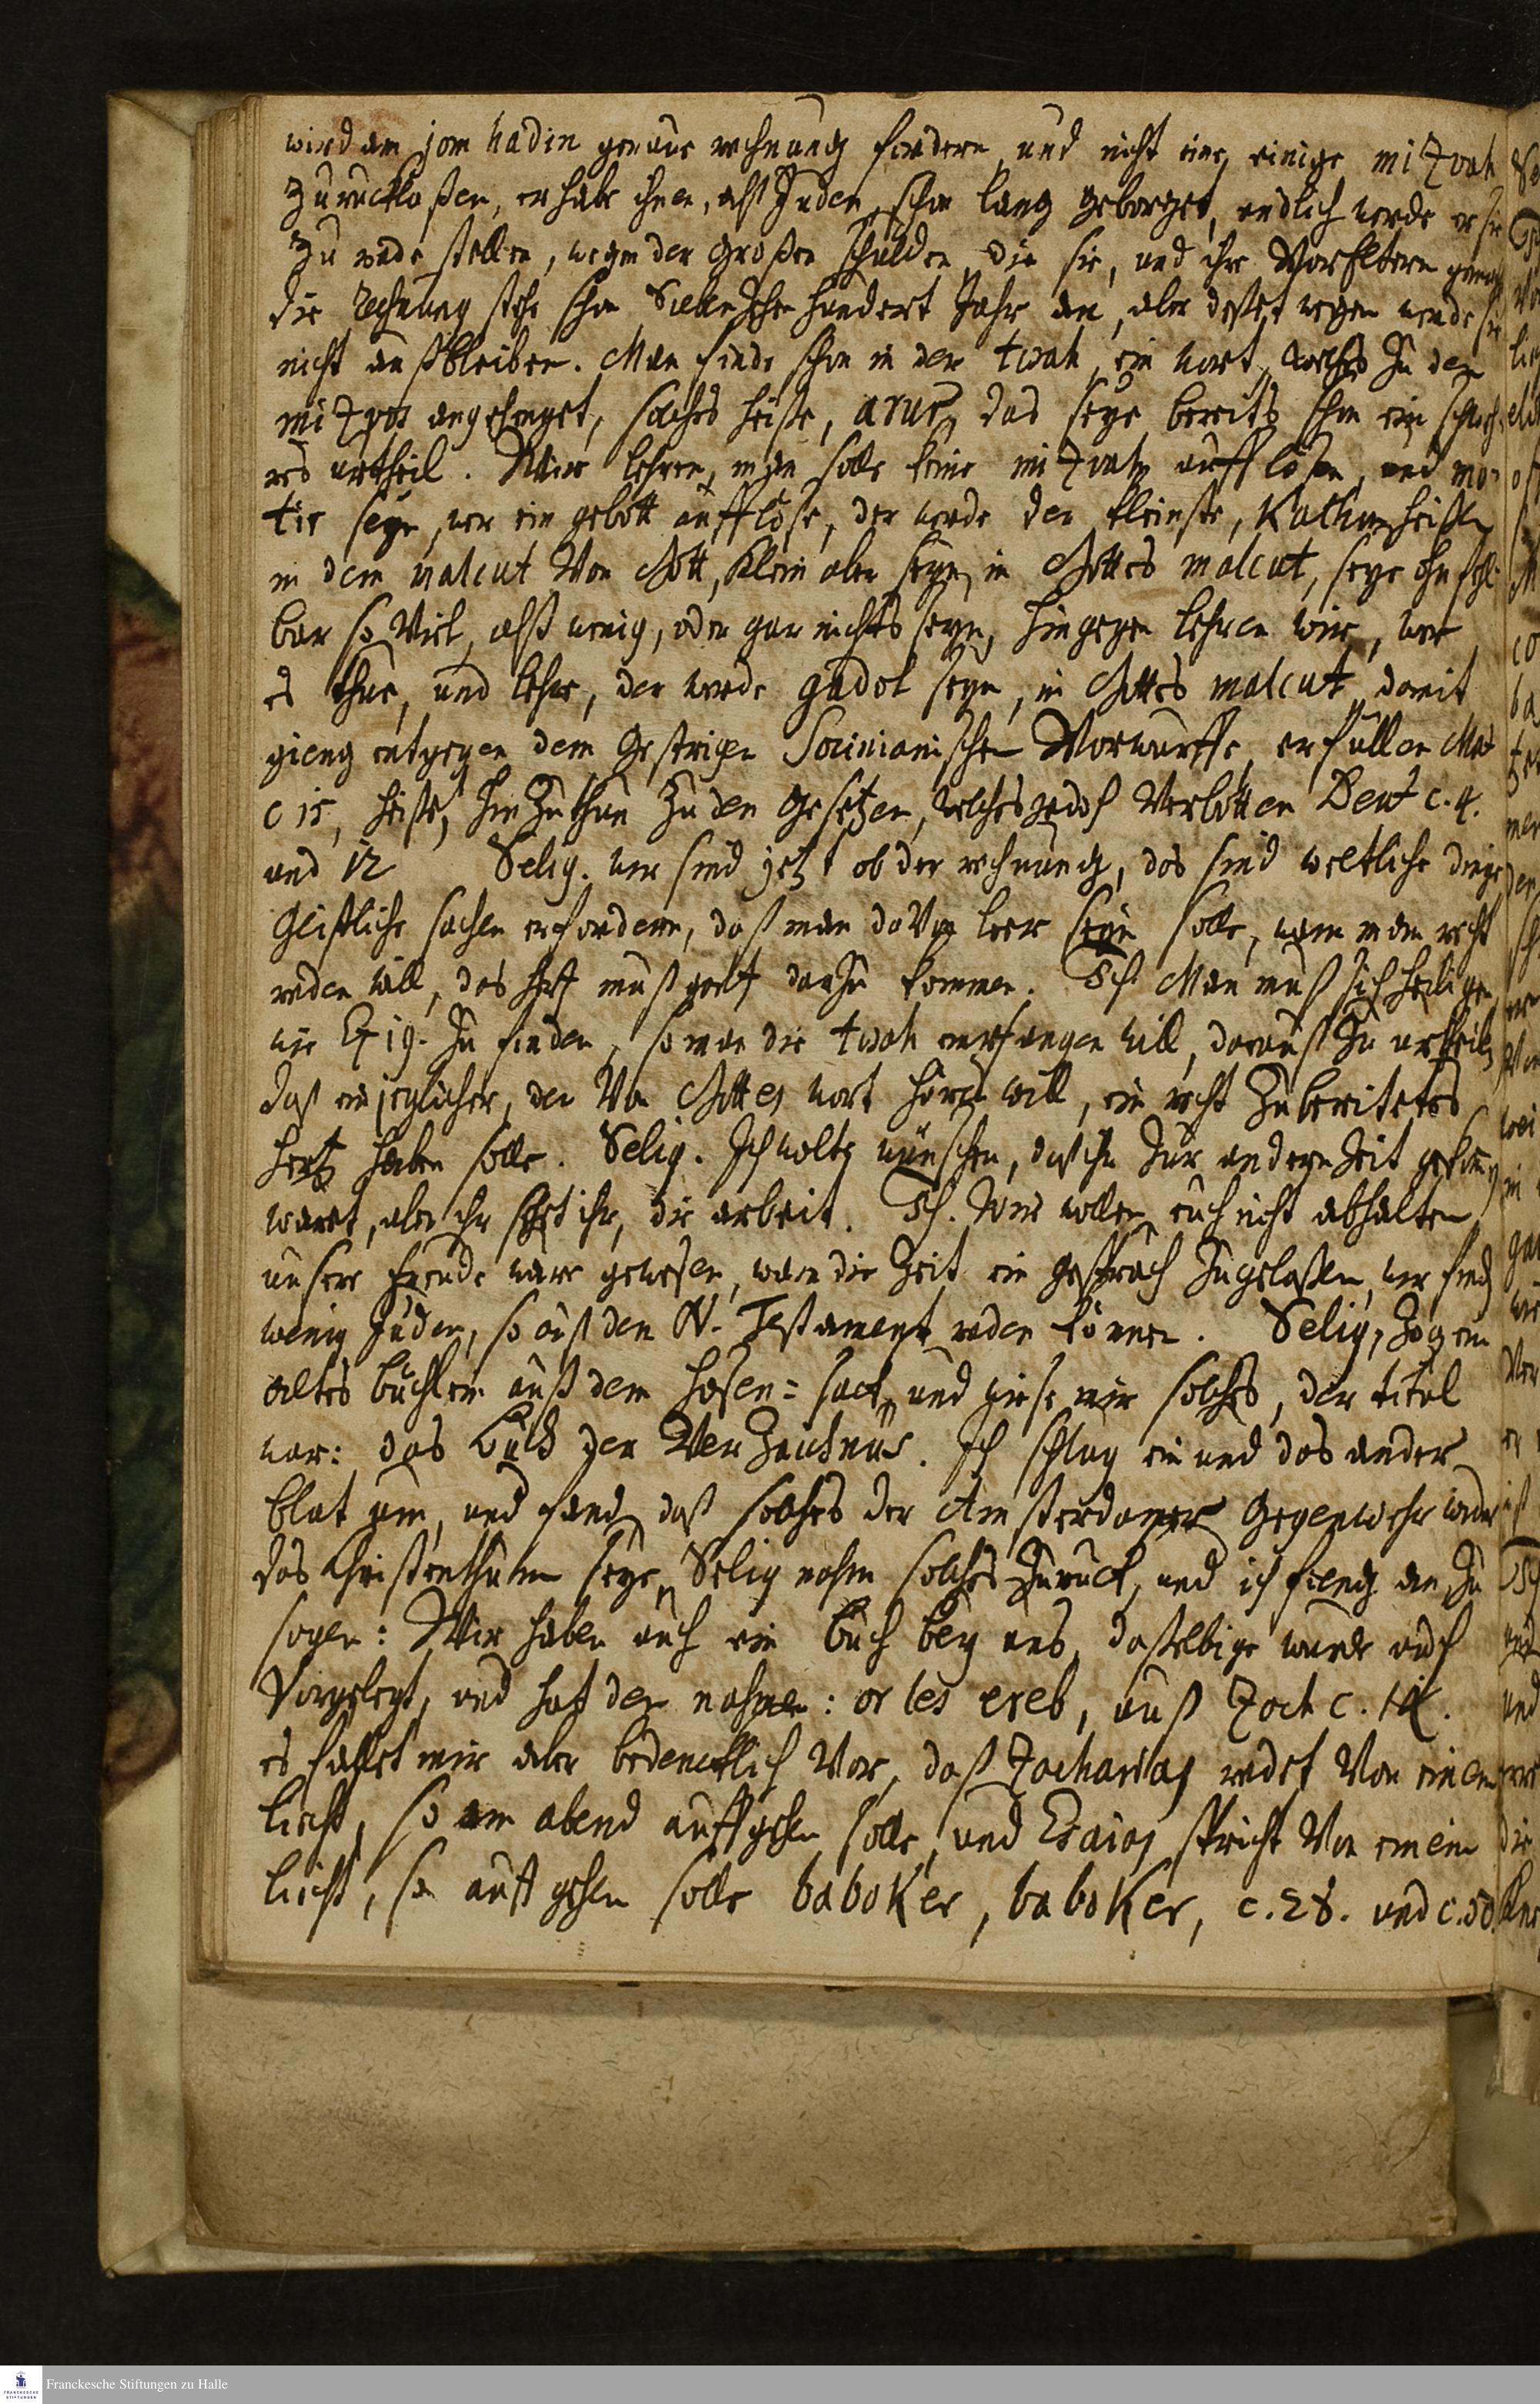 wird am jom hadin genaue rechnung fordern, und nicht eine einige mitzvah
zurucklaßen, er habe ihnen, alß Juden, schon lang geborget, endlich werde er sie
zu rede stellen, wegen der großen schulden, die sie, und ihre Vorfeltern gemacht
die rechnung stehe schon Siebenzehen hundert Jahr an, aber deßet wegen werde sie
nicht außbleiben. Man finde schon in der torah ein wort, welches zu den
mitzvos angehenget, solches heiße, arur, das seye bereits schon ein schweh-
res urtheil. Wir lehren, man solle keine mitzvah aufflösen, und mo-
tir seyn, wer ein gebott aufflöse, der werde der kleinste, Kathan heißen
in dem malcut Von Gott, klein aber seyn, in Gottes malcut, seye ohnfehl-
bar so Viel, alß wenig, oder gar nichts seyn, hingegen lehren wir, wer
es thue, und lehre, der werde gadol seyn, in Gottes malcut, damit
gieng entgegen dem Gestrigen Socinianischen Vorwurffe, erfüllen Mat
c 15, heiße, hinzuthun zu den Gesetzen, welches jedoch Verbotten Deut c. 4.
und 12 Selig. wir sind jetzt ob der rechnung, das sind weltliche dinge,
Geistliche sachen erfordern, daß man davon leer seyn solle, wann man recht
reden will, das hertz muß darzu kommen. Sch. Man muß sich heiligen,
wie Ex 19. zu finden, so man die torah empfangen will, darauß zu urtheilen
daß ein jeglicher, der Von Gottes wort hören will, ein recht zubereitetes
hertz haben solle. Selig. Ich wolte wünschen, daß ihr zur andern zeit gekommen
waret, aber ihr sehet ihr, die arbeit. Sch. Wir wollen euch nicht abhalten
unsere freude ware gewesen, wann die Zeit ein gespräch zugelaßen, wir finden
wenig Juden, so auß dem N. Testament reden können. Selig, zog ein
altes büchlein auß dem hosen= sack, und wiese mir solches, der titul
war: das buch der Verzeichnus. Ich schlug ein und das ander
blat um, und fand, daß solches der Amsterdamer Gegenwehr wider
das Christenthum seye, Selig nahm solches zuruck, und ich fieng an zu
sagen: Wir haben auch ein buch bey uns, dasselbige wurde auch
Vorgelegt, und hat den nahmen: or les ereb, auß Zach c. 14.
es fallet mir aber bedencklich Vor, daß Zacharias redet Von einem
liecht, so am abend auffgehen solle, und Esaias spricht Von einem
liecht, so auffgehen solle baboker, baboker, c. 28. und c. 58.
Franckesche Stiftungen zu Halle